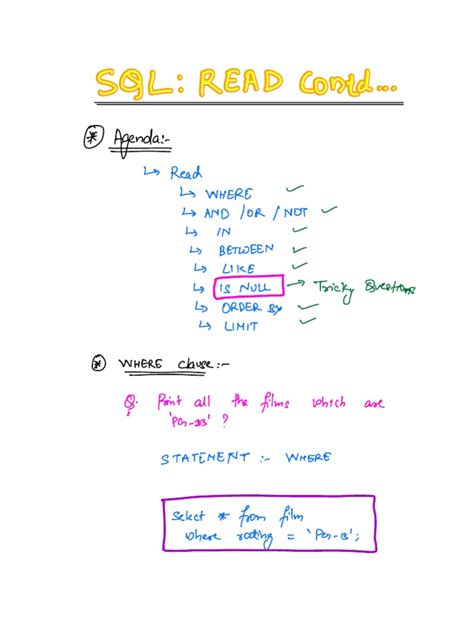 SQL: READ Contd...
* Agenda:-
↳ Read
↳ WHERE ✓
↳ AND / OR / NOT ✓
↳ IN ✓
↳ BETWEEN ✓
↳ LIKE ✓
↳ IS NULL → Tricky Questions
↳ ORDER BY ✓
↳ LIMIT ✓
* WHERE Clause:-
Q: Print all the films which are
'PG-13' ?
STATEMENT :- WHERE
Select * from film
where rating = 'PG-13';